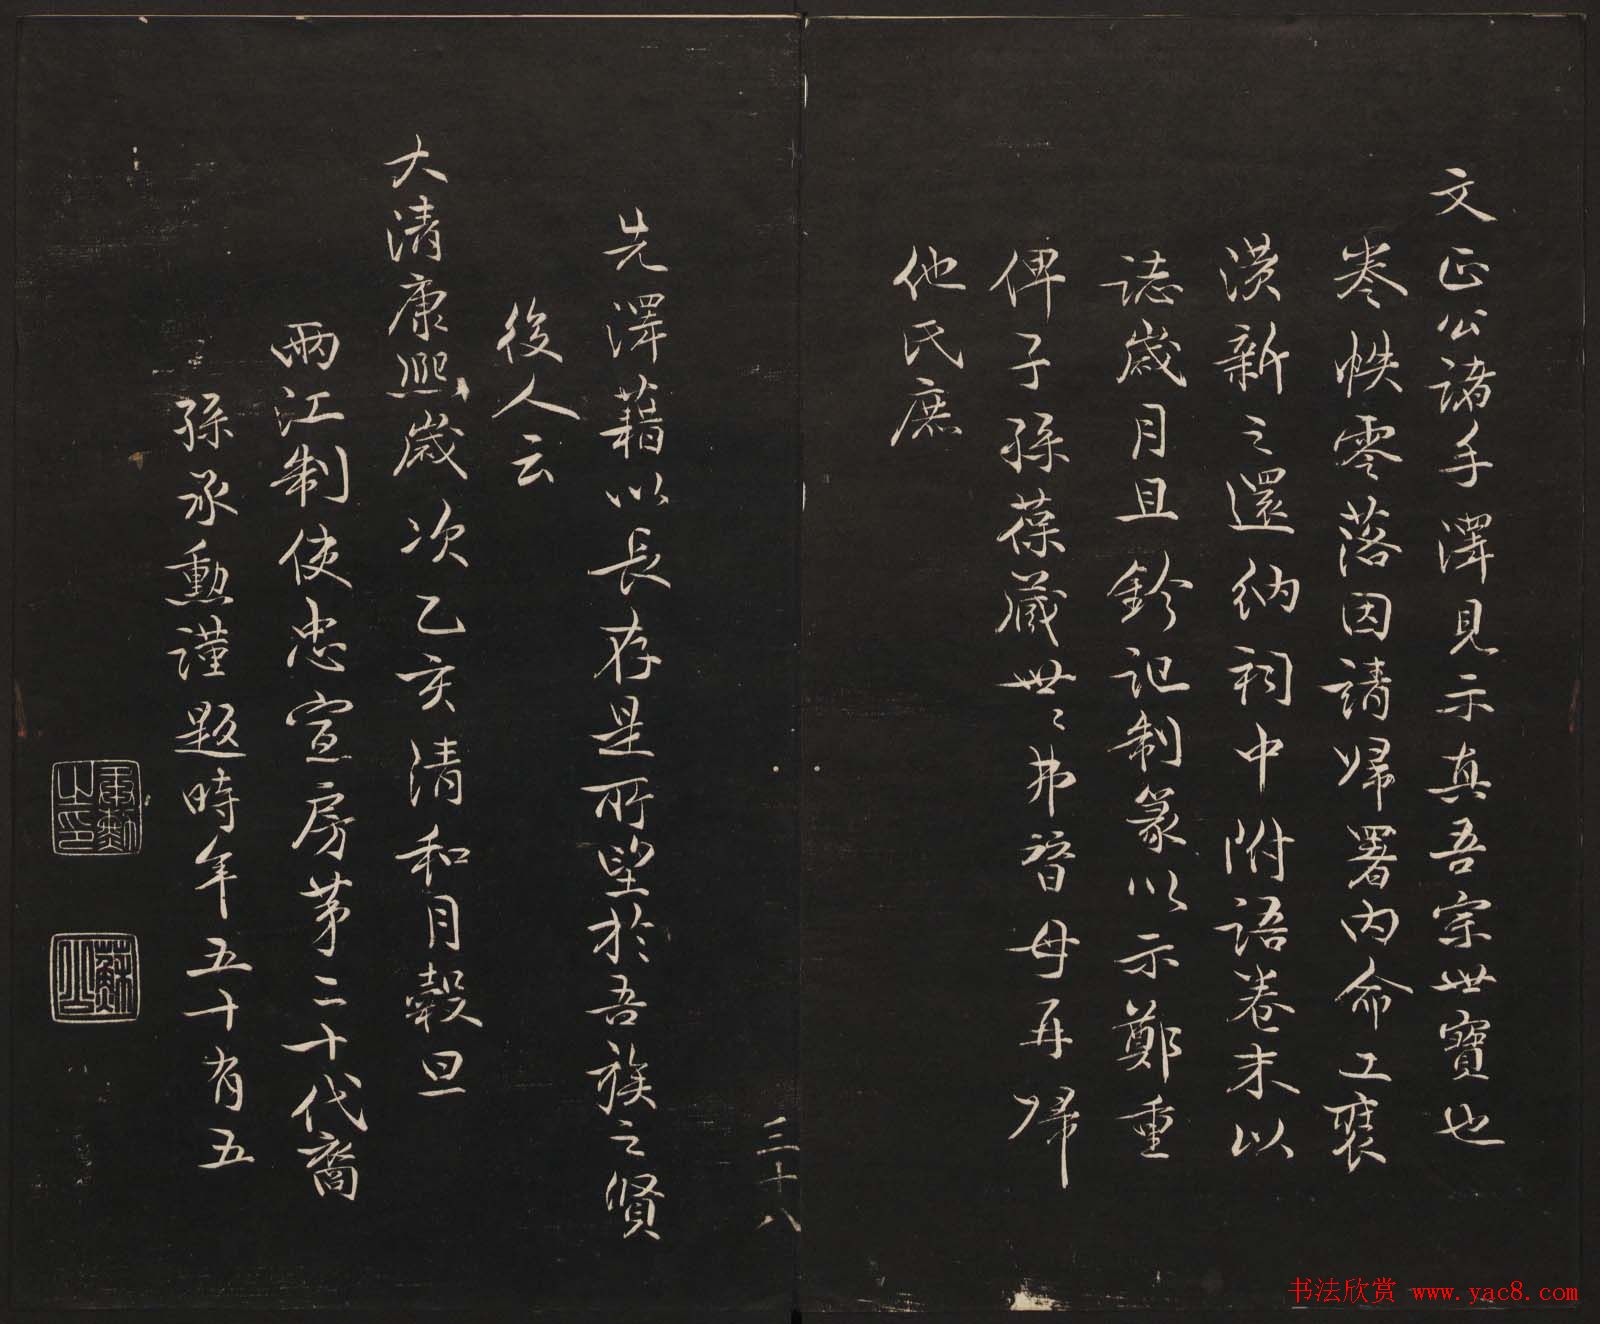 文正公諸手澤見示真吾宗世寶也
卷帙零落因請歸署内命工褒
潢新之還納祠中附語卷末以
誌歲月且鈐記制篆以示鄭重
俾子孫葆藏世〻弗替毋再歸
他氏庶
先澤藉以長存是所望於吾族之賢
後人云
大清康熙歲次乙亥清和月穀旦
兩江制使忠宣房第二十代裔
孫承勳謹題時年五十有五
承勳之印
蘇公
三十八
书法欣赏 www.yac8.com